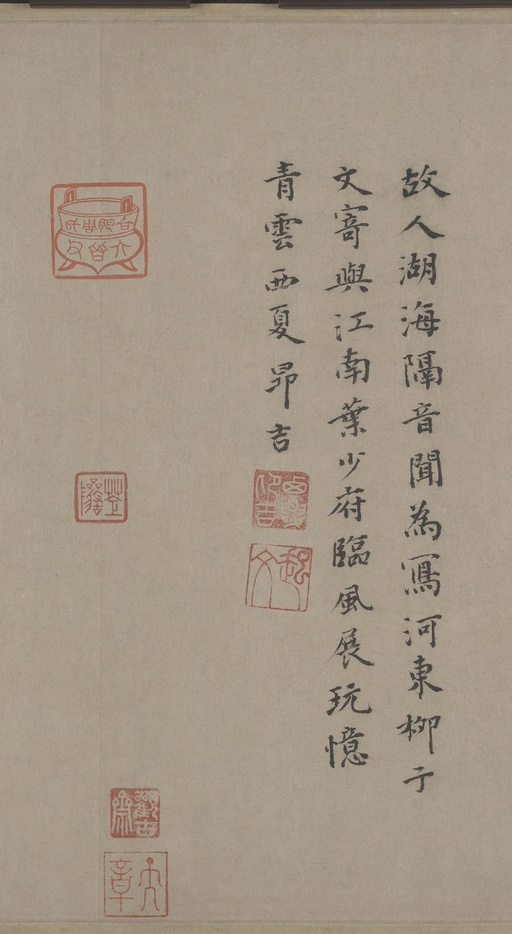 故人湖海隔音聞為寫河東柳子
文寄與江南葉少府臨風展玩憶
青雲西夏昂吉
起文